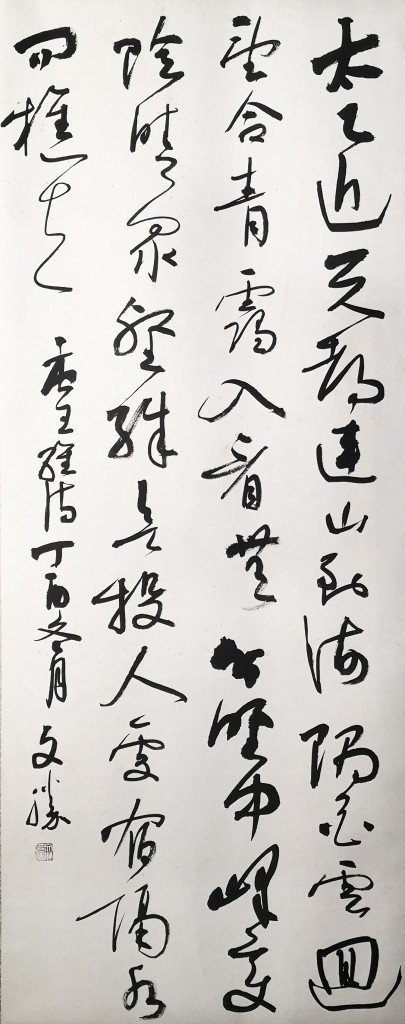 太乙近天都連山到海隅白雲迴
望合青靄入看無分野中峰變
陰晴眾壑殊欲投人處宿隔水
問樵夫 唐王維詩丁酉冬月 文勝